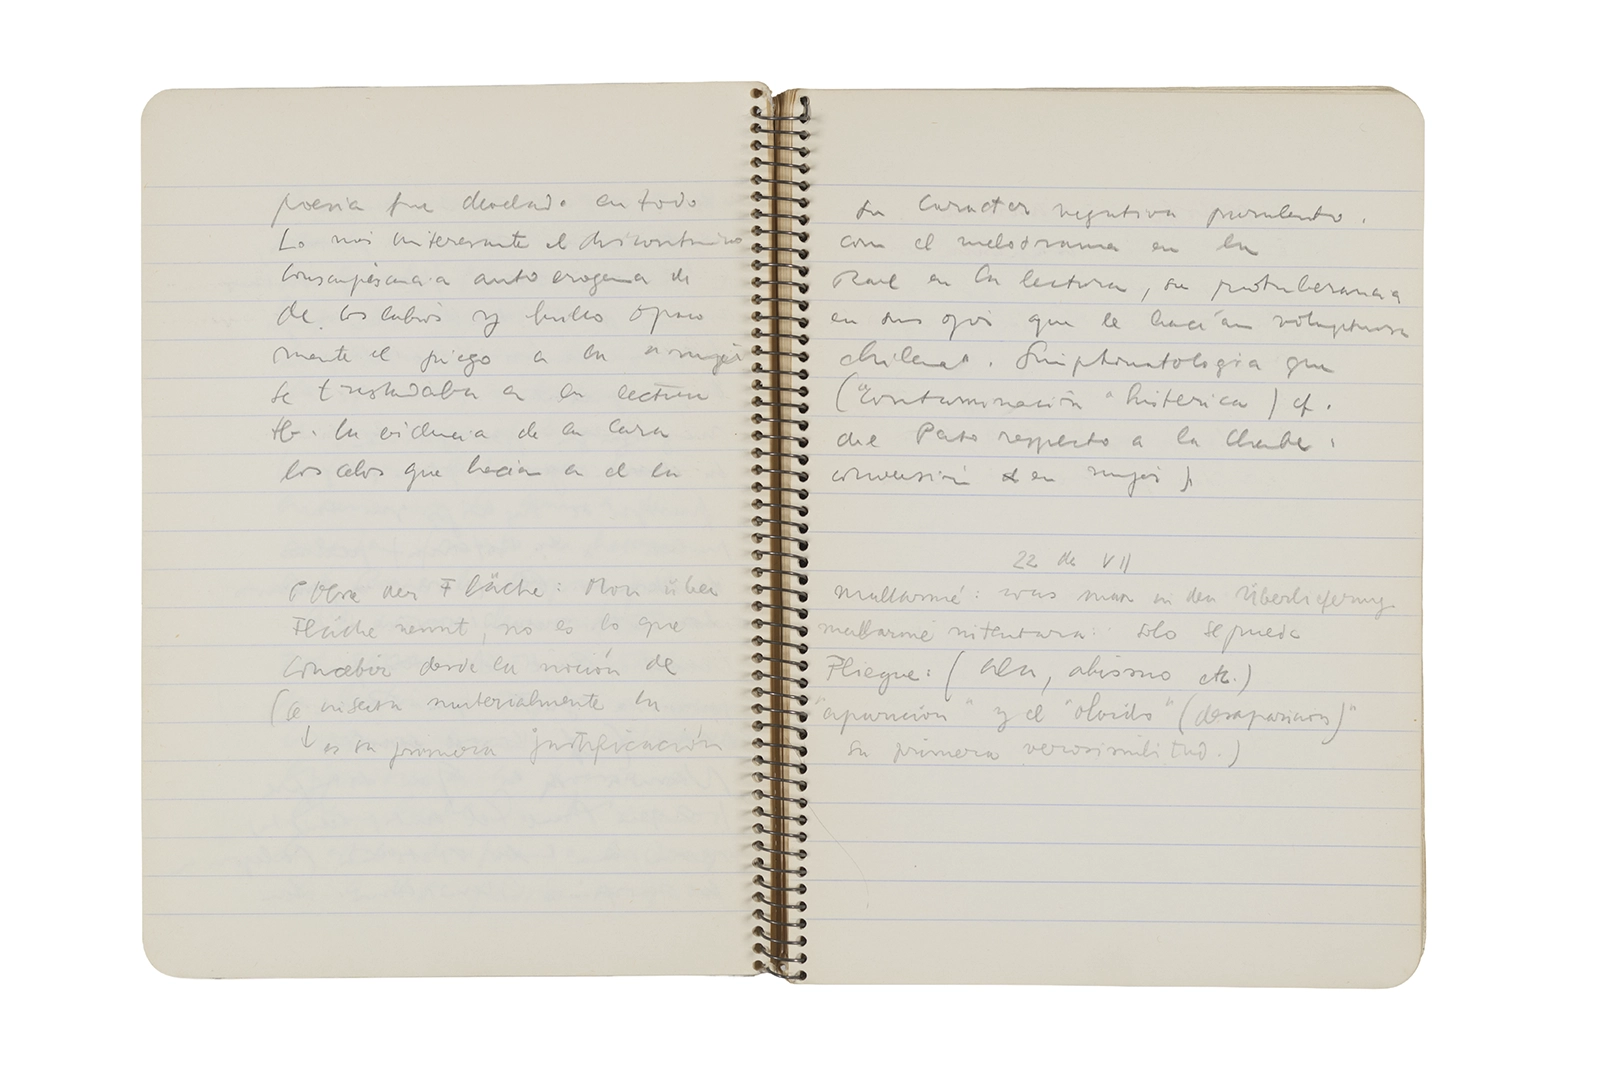 poesia fue desolado en todo
Lo más interesante el discontinuo
autoerogena de
de los labios y brillo opaco
mente el juego a la
se trasladaba a la lectura
la evidencia de la cara
los celos que hacían en el la
Obra der Fläche: Man über
Fläche nennt, no es lo que
concebir desde la noción de
(e inserta materialmente la
↓ es su primera justificación
su caracter negativa purulento.
con el melodrama en la
Raul en la lectura, su protuberancia
en sus ojos que le hacían voluptuosa
chilena. Simptomatologia que
("contaminación" histerica) cf.
del Pato respecto a la
conversión en mujer)
22 de VII
Mallarmé: was man in der Überlieferung
mallarmé intentara: solo se puede
Pliegue: (ala, abismo etc.)
"aparición" y el "olvido" (desaparición)"
su primera verosimilitud.)